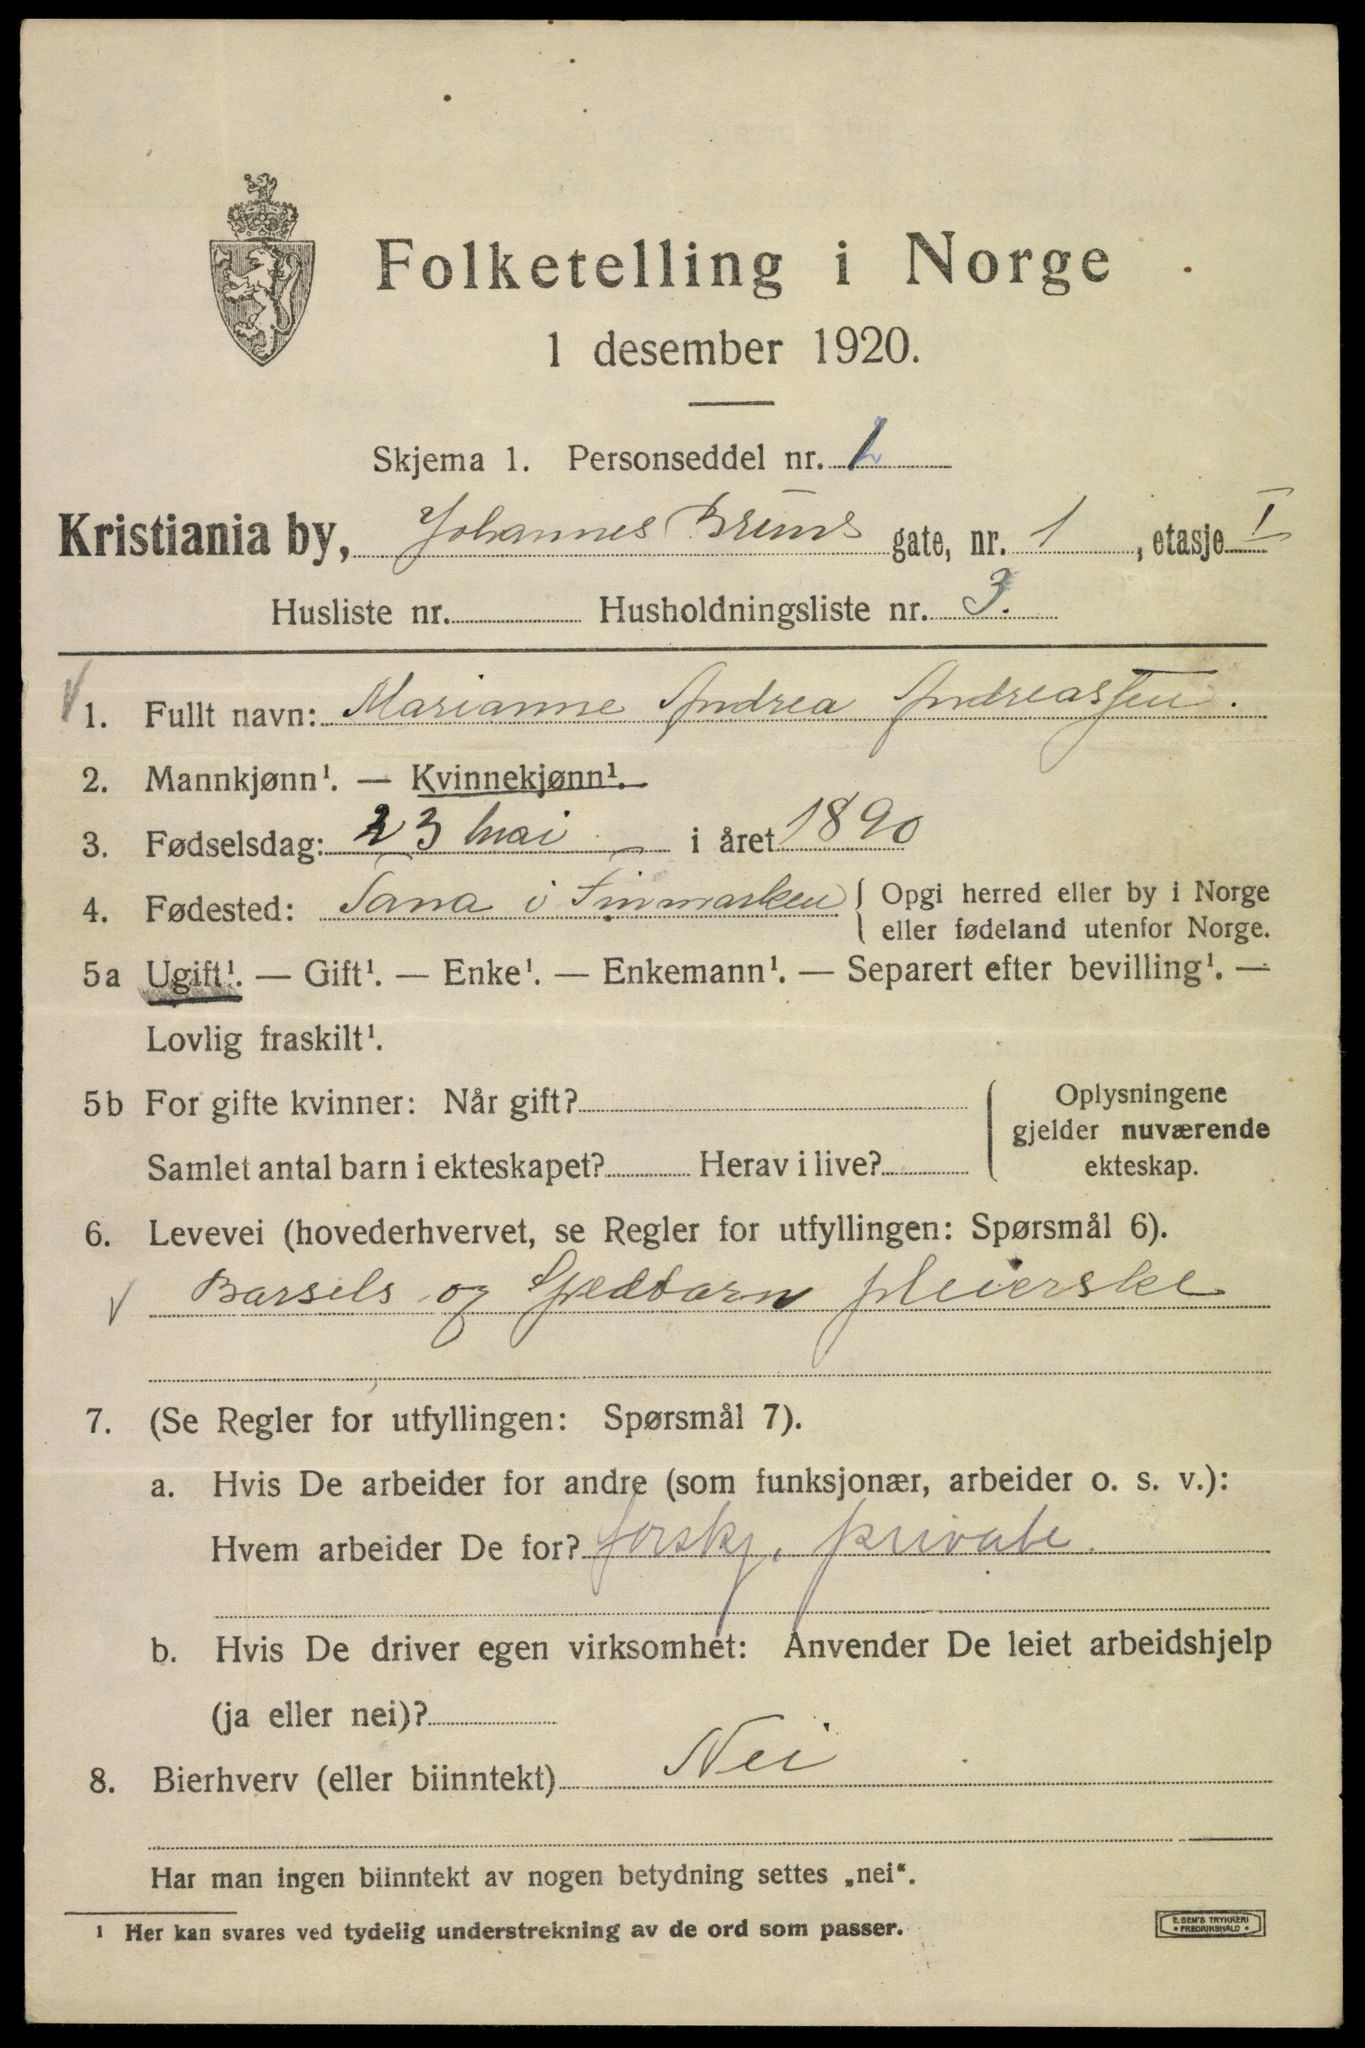 Folketelling i Norge
1 desember 1920.
Skjema 1. Personseddel nr.
Kristiania by, Johannes Bruns gate, nr. 1, etasje I
Husliste nr. Husholdningsliste nr. 3.
1. Fullt navn: Marianne Andrea Andreassen.
2. Mannkjønn¹. — Kvinnekjønn¹.
3. Fødselsdag: 23 mai i året 1890
4. Fødested: Tana i Finmarken { Opgi herred eller by i Norge
eller fødeland utenfor Norge.
5a Ugift¹. — Gift¹. — Enke¹. — Enkemann¹. — Separert efter bevilling¹. —
Lovlig fraskilt¹.
5b For gifte kvinner: Når gift? Oplysningene
gjelder nuværende
Samlet antal barn i ekteskapet? Herav i live? ekteskap.
6. Levevei (hovederhvervet, se Regler for utfyllingen: Spørsmål 6).
Barsels og Spædbarn pleierske
7. (Se Regler for utfyllingen: Spørsmål 7).
a. Hvis De arbeider for andre (som funksjonær, arbeider o. s. v.):
Hvem arbeider De for? forskj. private.
b. Hvis De driver egen virksomhet: Anvender De leiet arbeidshjelp
(ja eller nei)?
8. Bierhverv (eller biinntekt) Nei
Har man ingen biinntekt av nogen betydning settes „nei“.
¹ Her kan svares ved tydelig understrekning av de ord som passer.
E. SEM'S TRYKKERI
FREDRIKSHALD